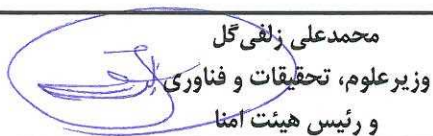 محمدعلی زلفی گل
وزیر علوم، تحقیقات و فناوری
و رئیس هیئت امنا